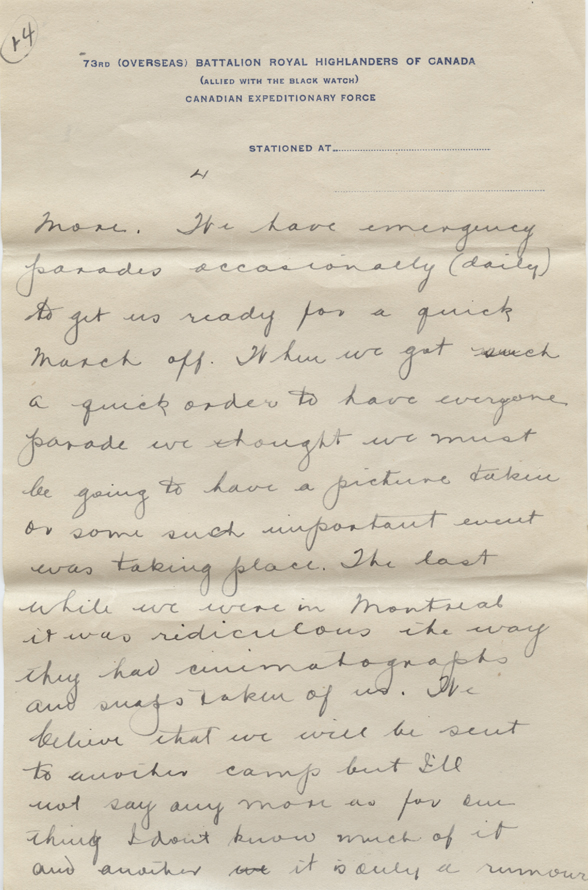 14
73RD (OVERSEAS) BATTALION ROYAL HIGHLANDERS OF CANADA
(ALLIED WITH THE BLACK WATCH)
CANADIAN EXPEDITIONARY FORCE
STATIONED AT
4
More. We have emergency
parades occasionally (daily)
to get us ready for a quick
march off. When we got such
a quick order to have everyone
parade we thought we must
be going to have a picture taken
or some such important event
was taking place. The last
while we were in Montreal
it was ridiculous the way
they had cinimatographs
and snaps taken of us. We
believe that we will be sent
to another camp but I'll
not say any more as for one
thing I don't know much of it
and another we it is only a rumour